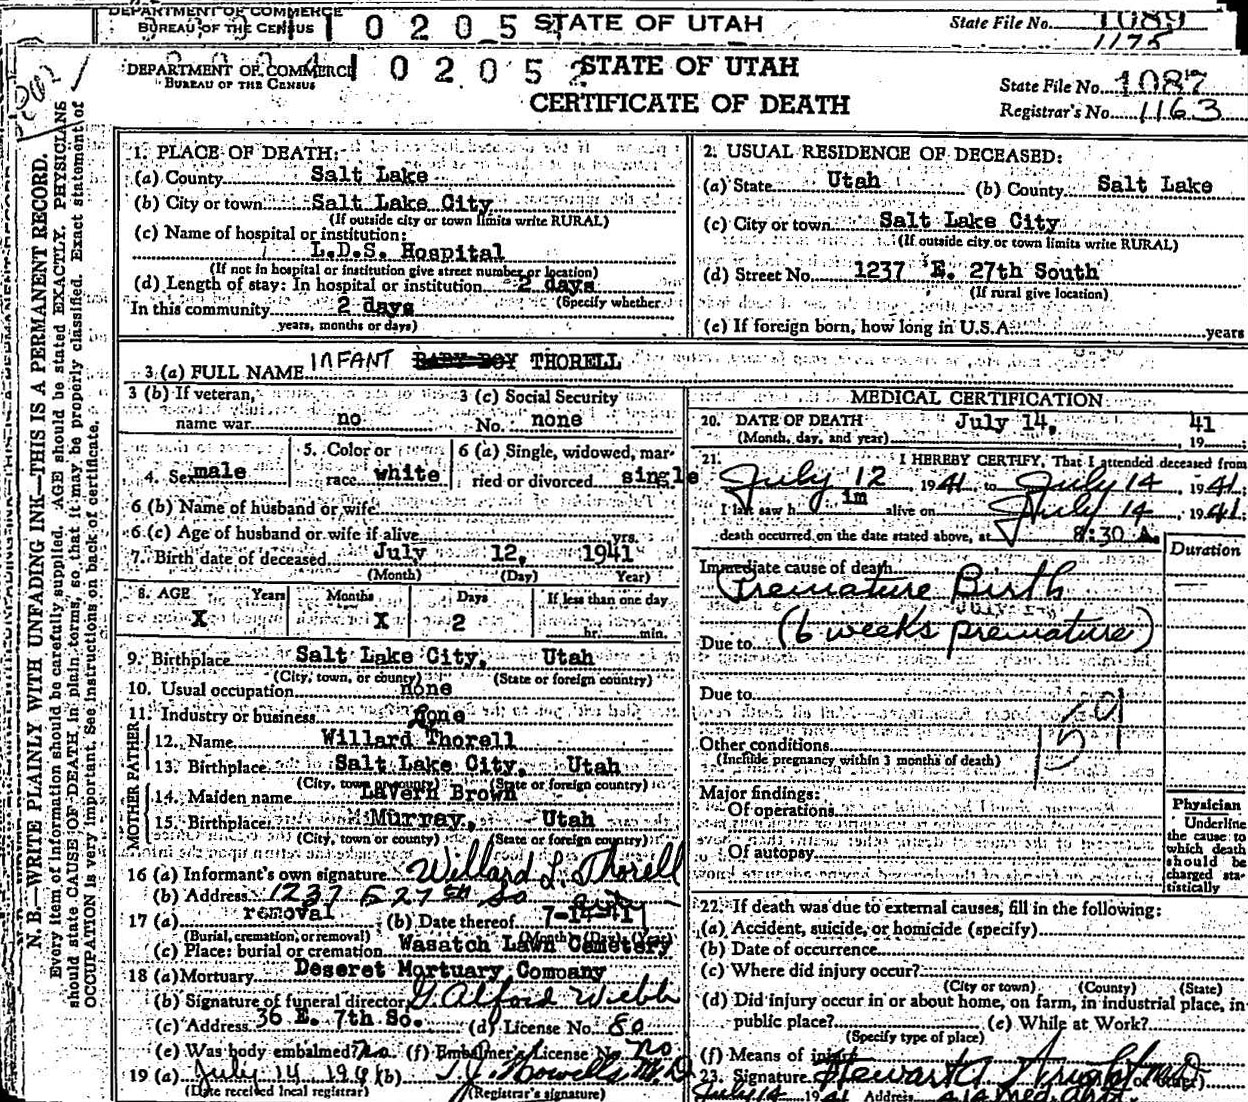 DEPARTMENT OF COMMERCE
BUREAU OF THE CENSUS
10205
STATE OF UTAH
State File No. 1089
1175
DEPARTMENT OF COMMERCE
BUREAU OF THE CENSUS
102052
STATE OF UTAH
CERTIFICATE OF DEATH
State File No. 1087
Registrar's No. 1163
N. B.—WRITE PLAINLY WITH UNFADING INK—THIS IS A PERMANENT RECORD.
Every item of information should be carefully supplied. AGE should be stated EXACTLY. PHYSICIANS
should state CAUSE OF DEATH in plain terms, so that it may be properly classified. Exact statement of
OCCUPATION is very important. See instructions on back of certificate.
1. PLACE OF DEATH:
(a) County Salt Lake
(b) City or town Salt Lake City
(If outside city or town limits write RURAL)
(c) Name of hospital or institution:
L.D.S. Hospital
(If not in hospital or institution give street number or location)
(d) Length of stay: In hospital or institution 2 days
(Specify whether
In this community 2 days
years, months or days)
2. USUAL RESIDENCE OF DECEASED:
(a) State Utah (b) County Salt Lake
(c) City or town Salt Lake City
(If outside city or town limits write RURAL)
(d) Street No. 1237 E. 27th South
(If rural give location)
(e) If foreign born, how long in U.S.A. years
3 (a) FULL NAME INFANT BABY BOY THORELL
3 (b) If veteran,
name war no
3 (c) Social Security
No. none
4. Sex male
5. Color or
race white
6 (a) Single, widowed, mar-
ried or divorced single
6 (b) Name of husband or wife
6 (c) Age of husband or wife if alive yrs.
7. Birth date of deceased July 12, 1941
(Month) (Day) Year)
8. AGE Years Months Days If less than one day
X X 2 hr. min.
9. Birthplace Salt Lake City, Utah
(City, town, or county) (State or foreign country)
10. Usual occupation none
11. Industry or business none
FATHER
12. Name Willard Thorell
13. Birthplace Salt Lake City, Utah
(City, town or county) (State or foreign country)
MOTHER
14. Maiden name LaVern Brown
15. Birthplace Murray, Utah
(City, town or county) (State or foreign country)
16 (a) Informant's own signature Willard L. Thorell
(b) Address 1237 E 27th So
17 (a) removal (b) Date thereof 7-14-41
(Burial, cremation, or removal) (Month) (Day) (Year)
(c) Place: burial or cremation Wasatch Lawn Cemetery
18 (a) Mortuary Deseret Mortuary Company
(b) Signature of funeral director G Alford Webb
(c) Address 36 E. 7th So. (d) License No. 80
(e) Was body embalmed? No (f) Embalmer's License No. no
19 (a) July 14 1941 (b) M.D.
(Date received local registrar) (Registrar's signature)
MEDICAL CERTIFICATION
20. DATE OF DEATH July 14, 41
(Month, day, and year) 19
21. I HEREBY CERTIFY, That I attended deceased from
July 12, 1941, to July 14, 1941;
I last saw h im alive on July 14, 1941;
death occurred on the date stated above, at 8:30 A.
Duration
Immediate cause of death
Premature Birth
Due to (6 weeks premature)
Due to
159
Other conditions
(Include pregnancy within 3 months of death)
Major findings:
Of operations
Of autopsy
Physician
Underline
the cause to
which death
should be
charged sta-
tistically
22. If death was due to external causes, fill in the following:
(a) Accident, suicide, or homicide (specify)
(b) Date of occurrence
(c) Where did injury occur?
(City or town) (County) (State)
(d) Did injury occur in or about home, on farm, in industrial place, in
public place? (e) While at Work?
(Specify type of place)
(f) Means of injury
23. Signature Stewart A Wright M.D.
July 14 1941 Address